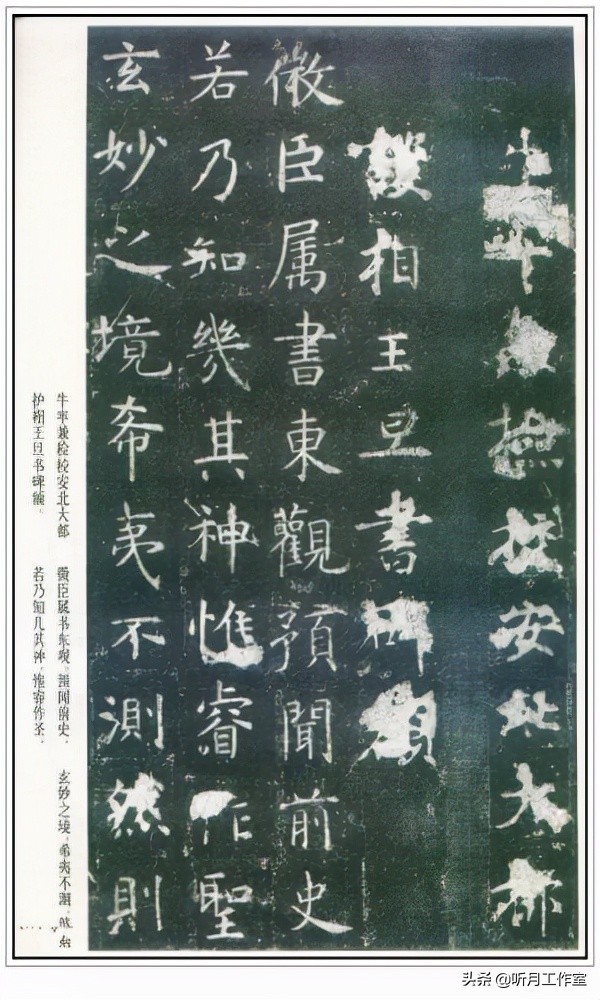 校安北大都
護相王旦書碑額
微臣属書東觀預聞前史
若乃知幾其神惟睿作聖
玄妙之境希夷不測然則
检校安北大都
护相王旦书碑额。
微臣属书东观，预闻前史，
若乃知几其神，惟睿作圣，
玄妙之境，希夷不测，
头条 @听月工作室